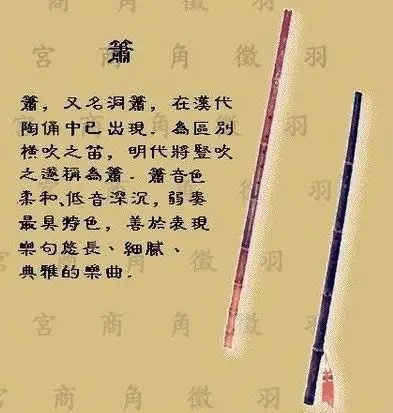 宮 商 角 徵 羽
簫
簫，又名洞簫，在漢代
陶俑中已出現．為區別
橫吹之笛，明代將豎吹
之邃稱為簫．簫音色
柔和、低音深沉，弱奏
最具特色，善於表現
樂句悠長、細膩、
典雅的樂曲．
宮 商 角 徵 羽
宮 商 角 徵 羽
宮 商 角 徵 羽
宮 商 角 徵 羽